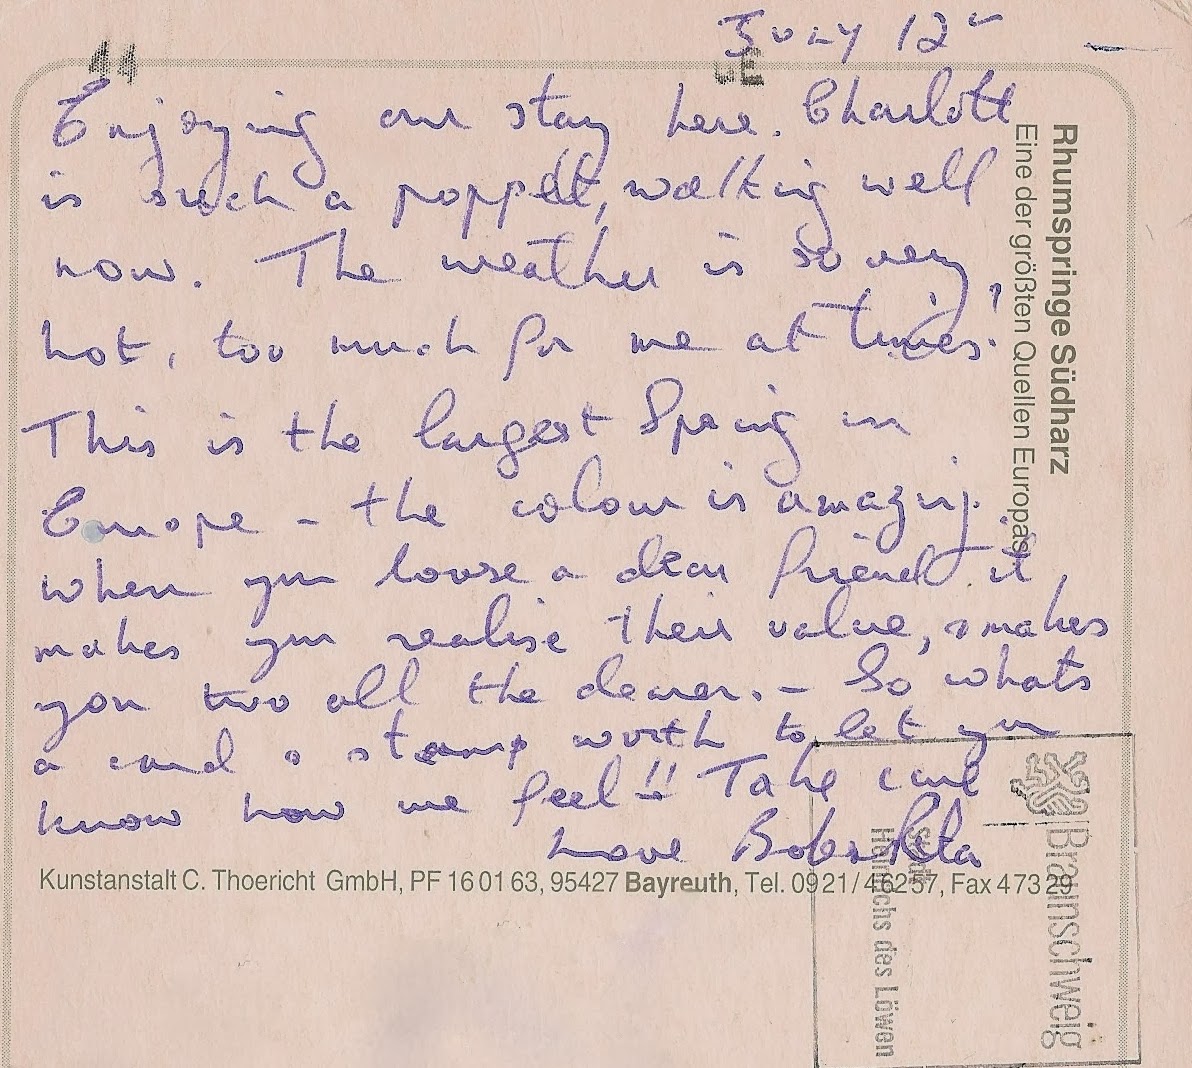 July 12th
44
GE
Enjoying our stay here. Charlott
is such a poppet, walking well
now. The weather is so very
hot, too much for me at times!
This is the largest Spring in
Europe - the colour is amazing.
when you loose a dear friend it
makes you realise their value, & makes
you two all the dearer. - So whats
a card & stamp worth to let you
know how we feel!! Take care
Love Bob & Rita
Rhumspringe Südharz
Eine der größten Quellen Europas
Kunstanstalt C. Thoericht GmbH, PF 16 01 63, 95427 Bayreuth, Tel. 09 21 / 4 6257, Fax 473 29
Braunschweig
Stadt
Heinrichs des Löwen